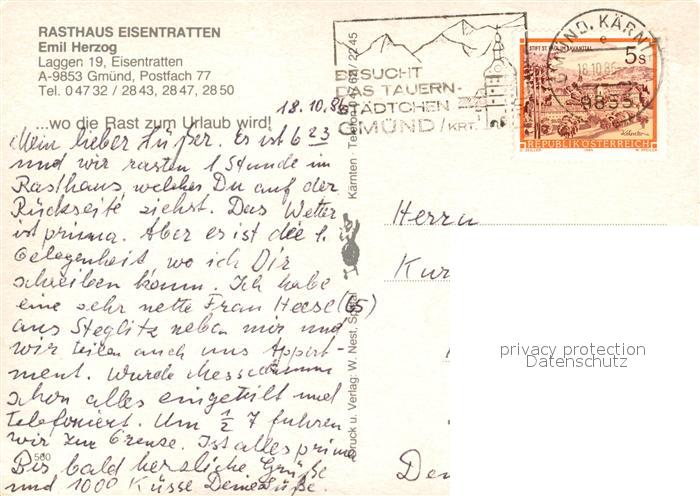 RASTHAUS EISENTRATTEN
Emil Herzog
Laggen 19, Eisentratten
A-9853 Gmünd, Postfach 77
Tel. 0 47 32 / 28 43, 28 47, 28 50
...wo die Rast zum Urlaub wird!
18.10.86
Mein lieber Süßer. Es ist 6 23
und wir rasten 1 Stunde im
Rasthaus, welches Du auf der
Rückseite siehst. Das Wetter
ist prima. Aber es ist die 1.
Gelegenheit wo ich Dir
schreiben kann. Ich habe
eine sehr nette Frau Heese (65)
aus Steglitz neben mir und
wir teilen auch uns Appart-
ment. Wurde
schon alles eingeteilt und
telefoniert. Um ½ 7 fuhren
wir zur Grenze. Ist alles prima
Bis bald herzliche Grüße
und 1000 Küsse Deine Süße.
560
Druck u. Verlag: W. Nest, Spittal
Kärnten - Telefon 0 47 62 / 22 45
BESUCHT
DAS TAUERN-
STÄDTCHEN
GMÜND / KRT.
GMÜND, KÄRNT
e
18.10.86
9853
STIFT ST. PAUL IM LAVANTTAL
5 S
REPUBLIK ÖSTERREICH
Herrn
Kur
privacy protection
Datenschutz